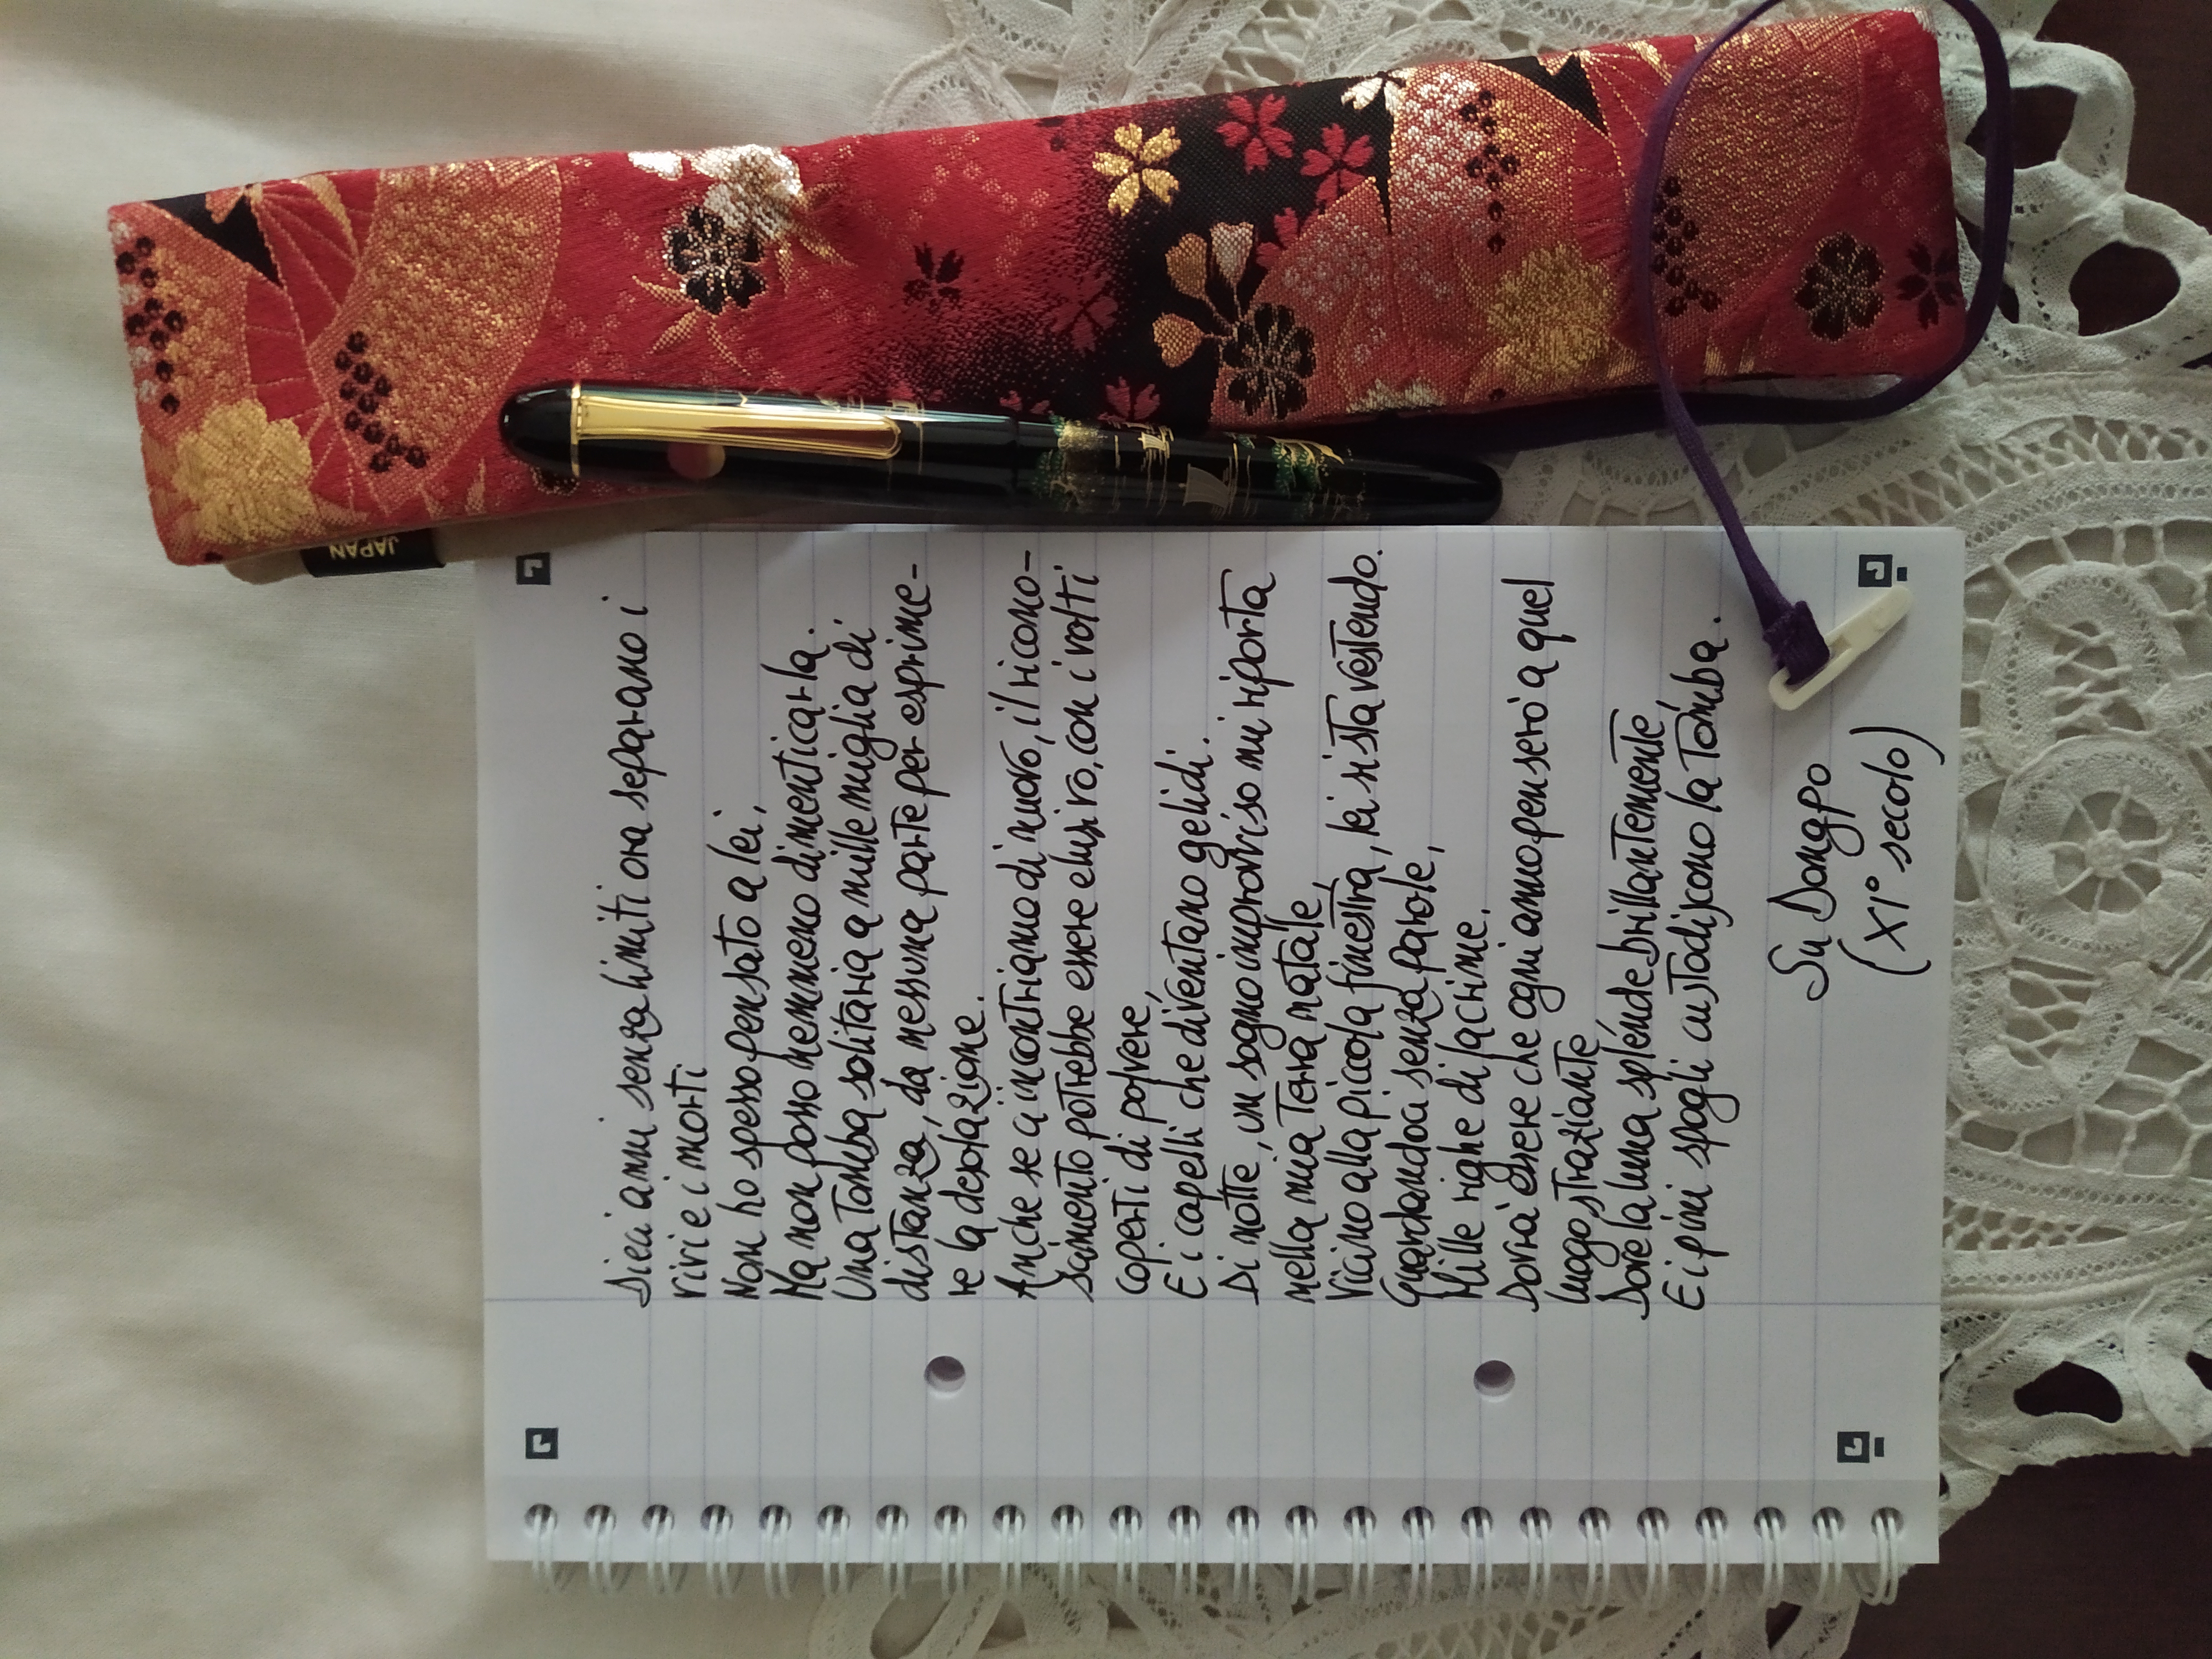 Dieci anni senza limiti ora separano i
vivi e i morti
Non ho spesso pensato a lei,
Ma non posso nemmeno dimenticarla.
Una tomba solitaria a mille miglia di
distanza, da nessuna parte per esprime-
re la desolazione.
Anche se ci incontriamo di nuovo, il ricono-
scimento potrebbe essere elusivo, con i volti
coperti di polvere,
E i capelli che diventano gelidi.
Di notte, un sogno improvviso mi riporta
nella mia terra natale,
Vicino alla piccola finestra, lei si sta vestendo.
Guardandoci senza parole,
Mille righe di lacrime.
Dovrà essere che ogni anno penserò a quel
luogo straziante
Dove la luna splende brillantemente,
E i pini spogli custodiscono la tomba.
Su Dongpo
(XI° secolo)
JAPAN